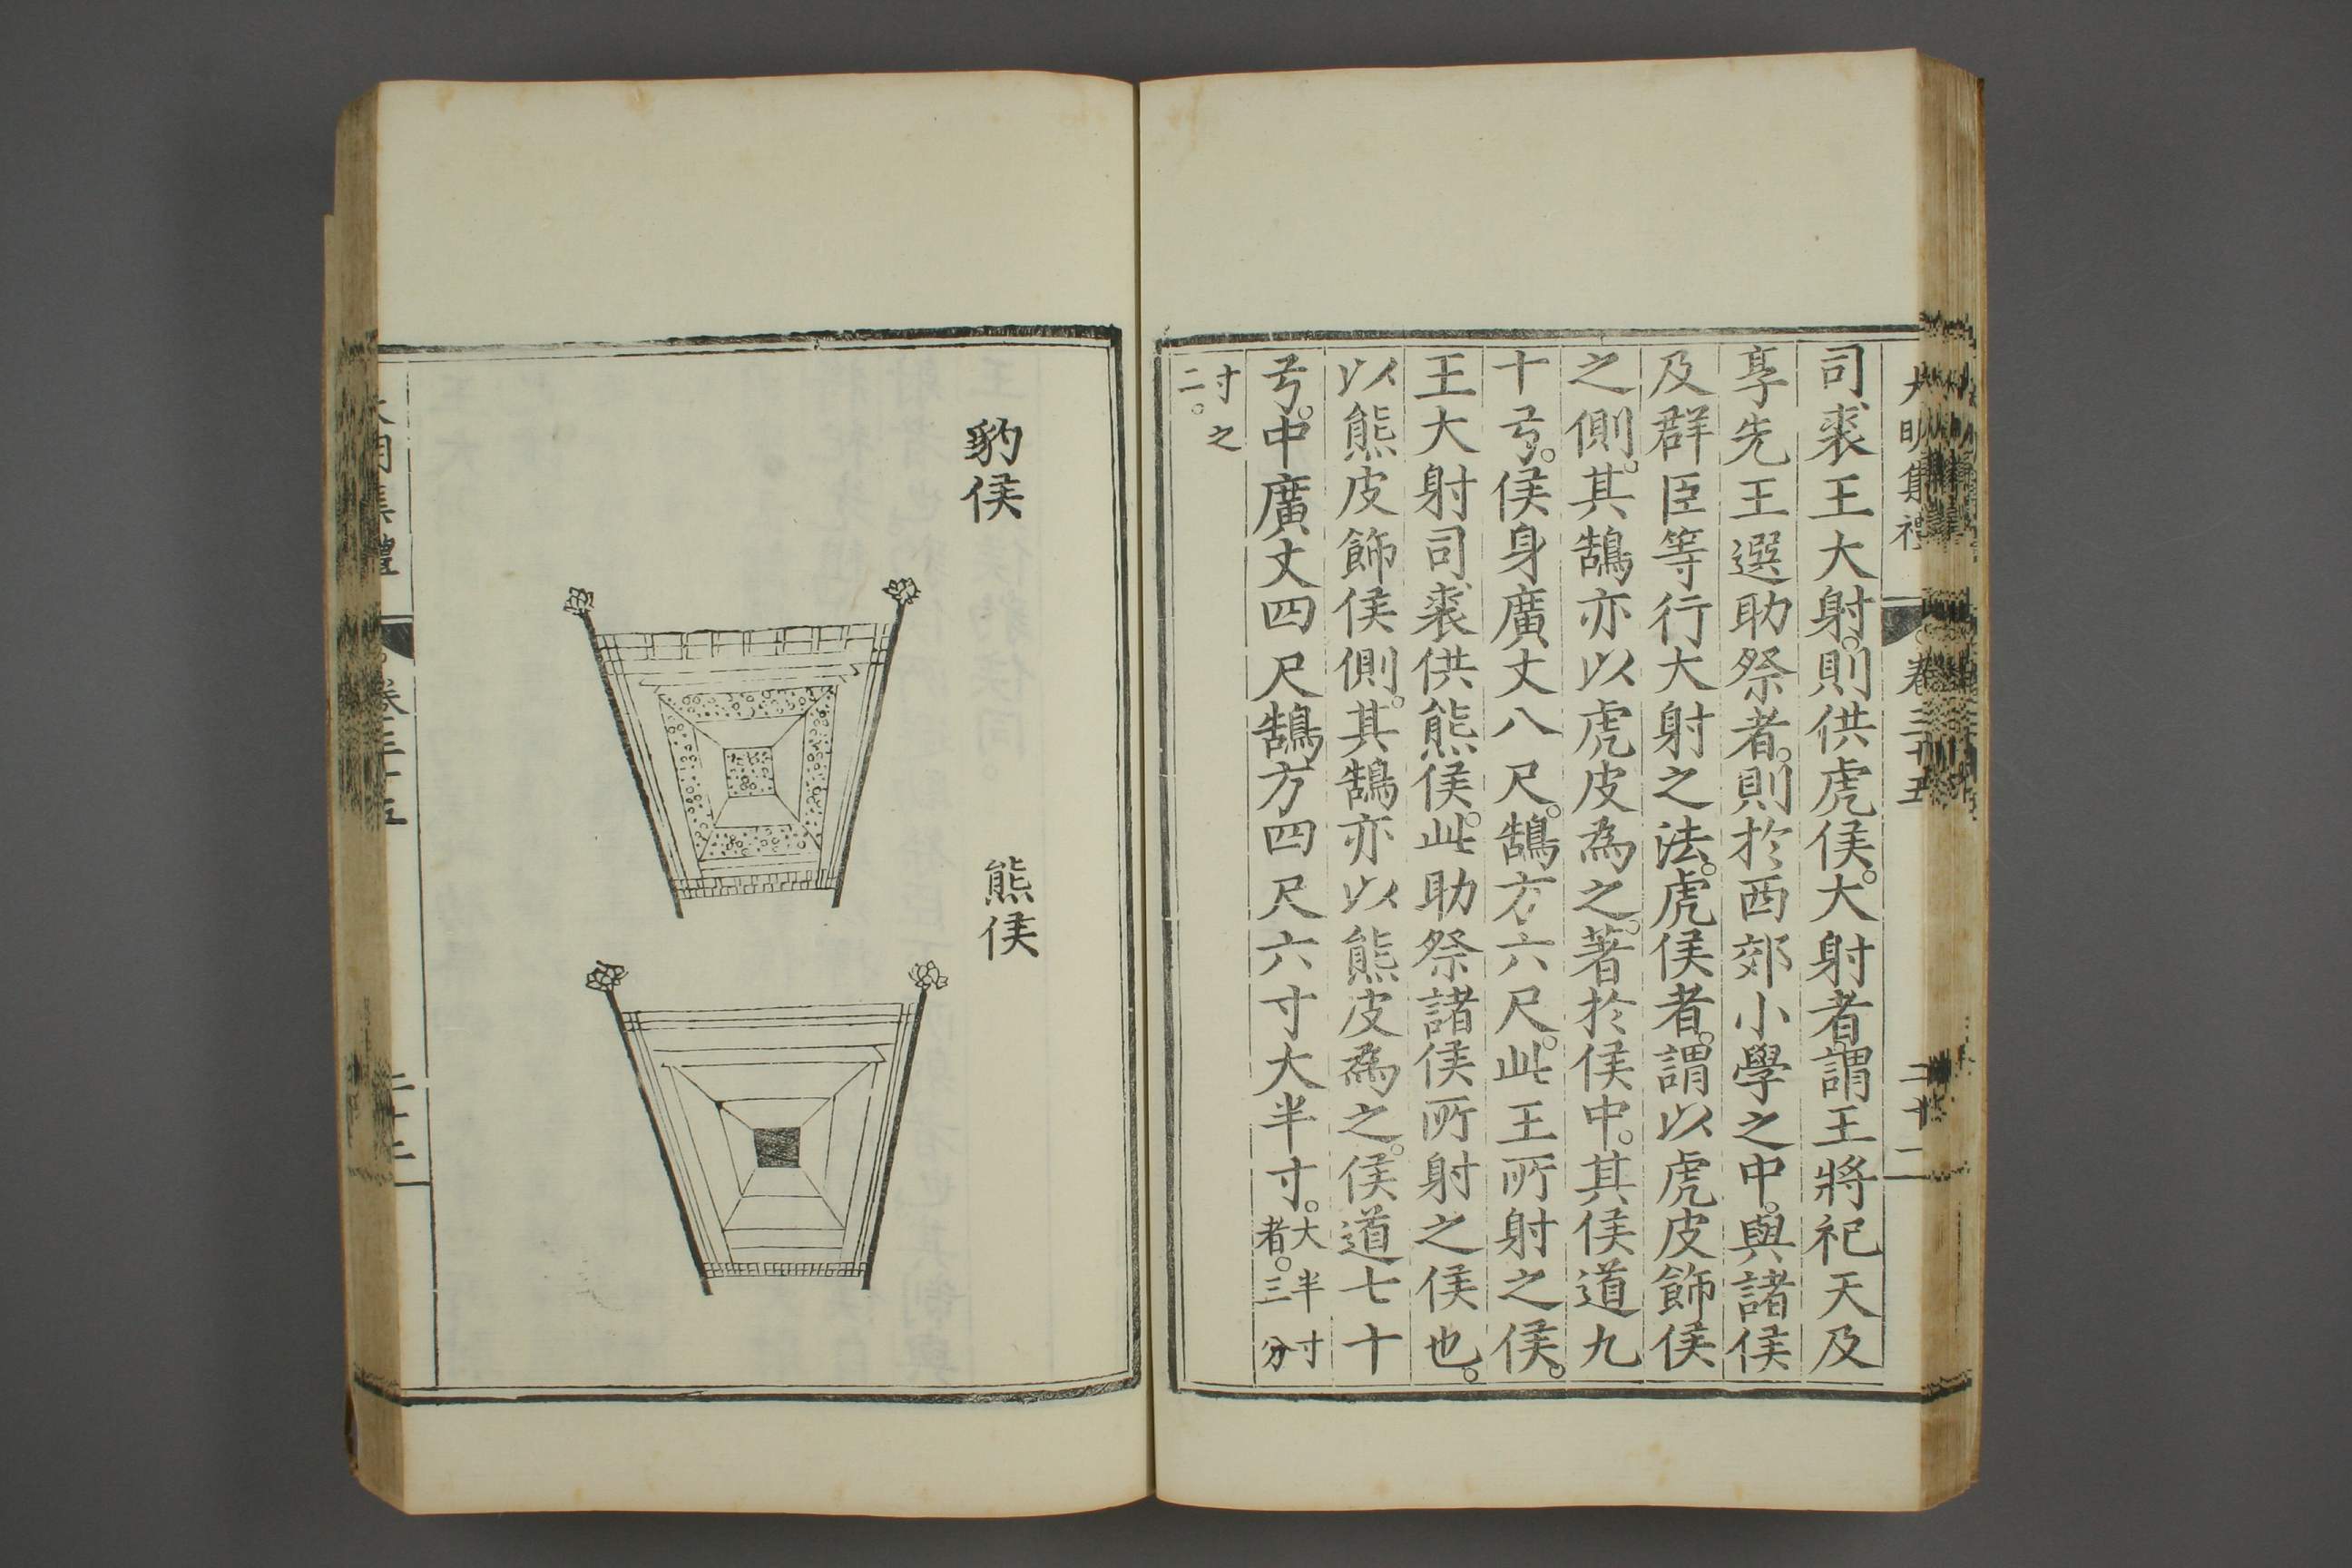 大明集禮 卷三十五 二十二
司裘王大射。則供虎侯。大射者。謂王將祀天及
享先王選助祭者。則於西郊小學之中。與諸侯
及群臣等行大射之法。虎侯者。謂以虎皮飾侯
之側。其鵠亦以虎皮為之。著於侯中。其侯道九
十弓。侯身廣丈八尺。鵠方六尺。此王所射之侯。
王大射司裘供熊侯。此助祭諸侯所射之侯也。
以熊皮飾侯側。其鵠亦以熊皮為之。侯道七十
弓。中廣丈四尺鵠方四尺六寸大半寸。大半寸
者。三分
寸之
二。
豹侯
熊侯
大明集禮 卷三十五